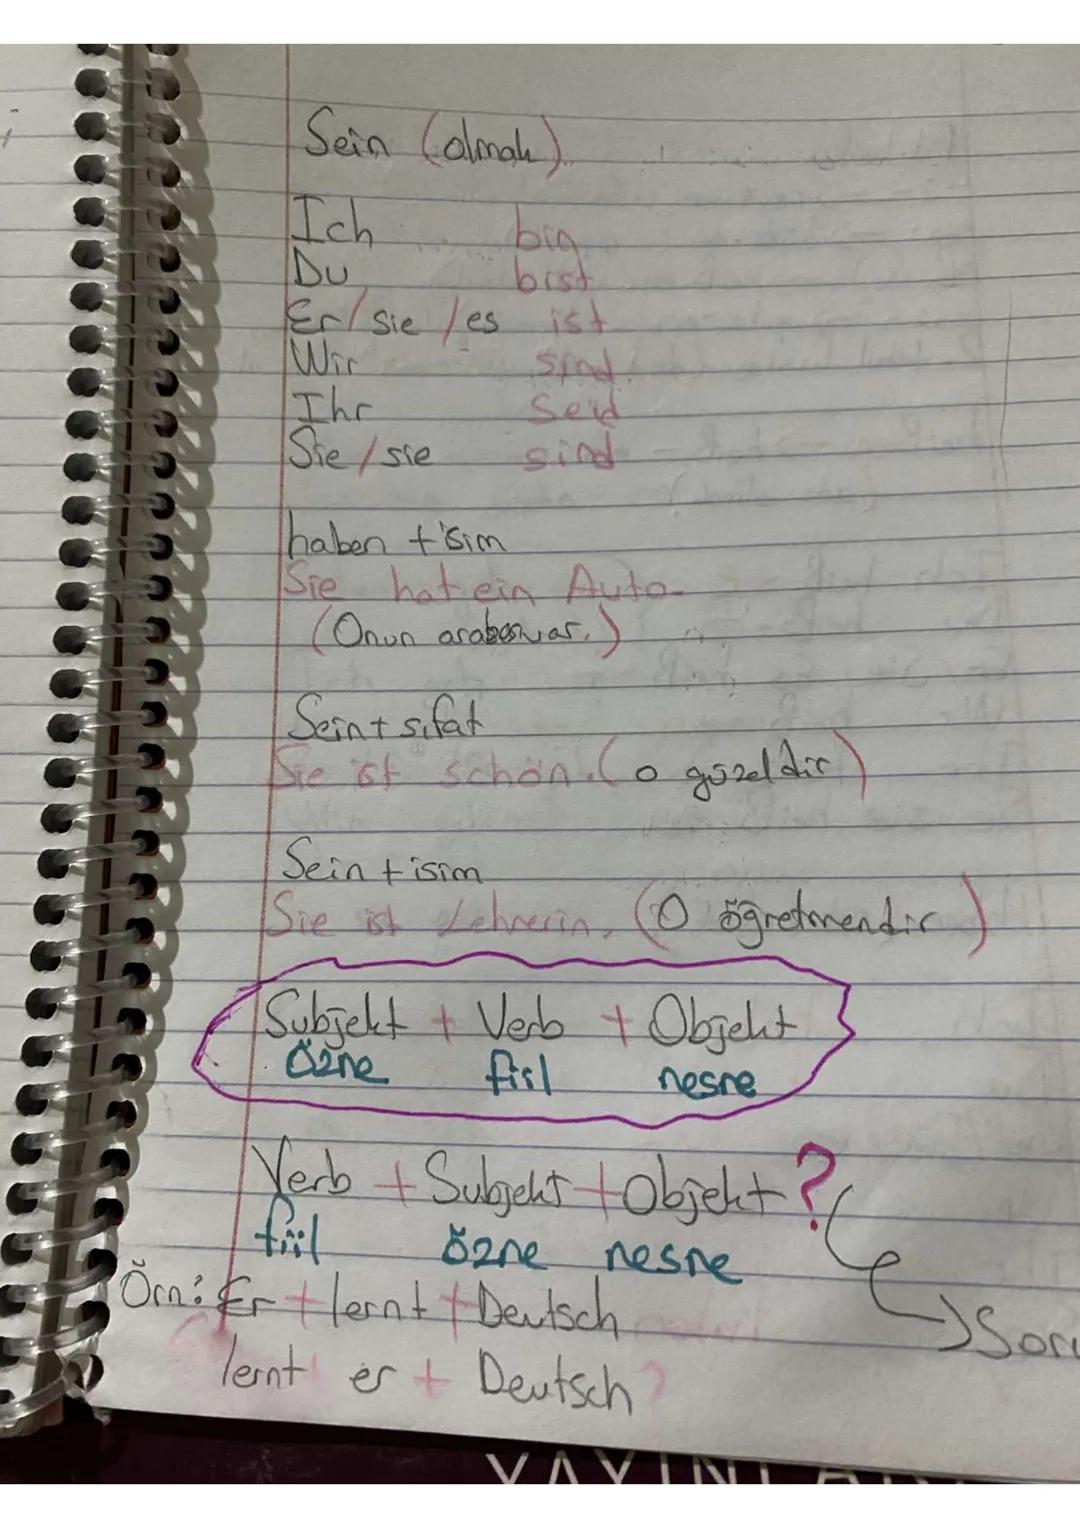 Sein (olmak)
Ich bin
Du bist
Er/sie/es ist
Wir sind
Ihr seid
Sie/sie sind
haben + isim
Sie hat ein Auto.
(Onun arabası var.)
Sein + sıfat
Sie ist schön. (o güzeldir)
Sein + isim
Sie ist Lehrerin. (O öğretmendir)
Subjekt + Verb + Objekt
özne fiil nesne
Verb + Subjekt + Objekt ?
fiil özne nesne
→ Soru
Örn: Er + lernt + Deutsch
lernt er + Deutsch?
YAYINLAR